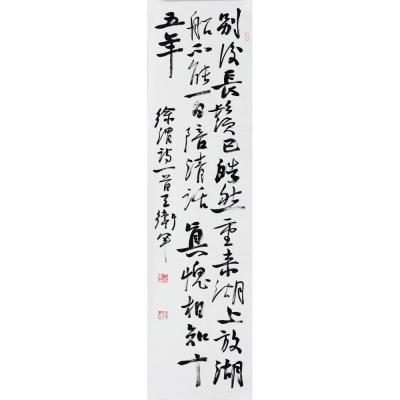 别後長已皓然重来湖上放湖
船不能一日陪清話真愧相知十
五年
徐渭詩一首王衛軍